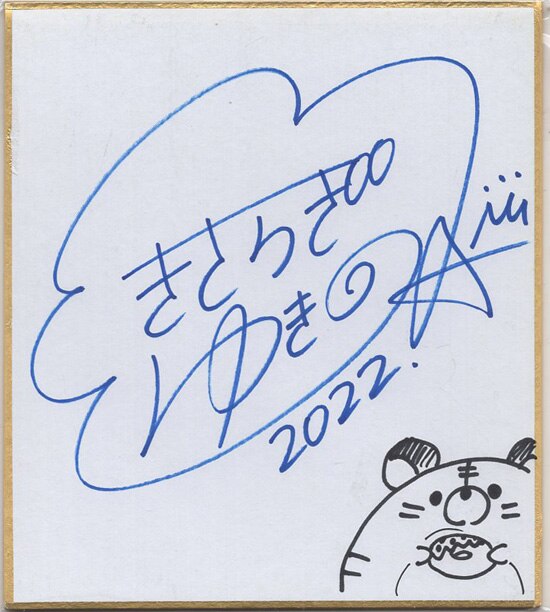 きさらぎ
ゆきの
2022.